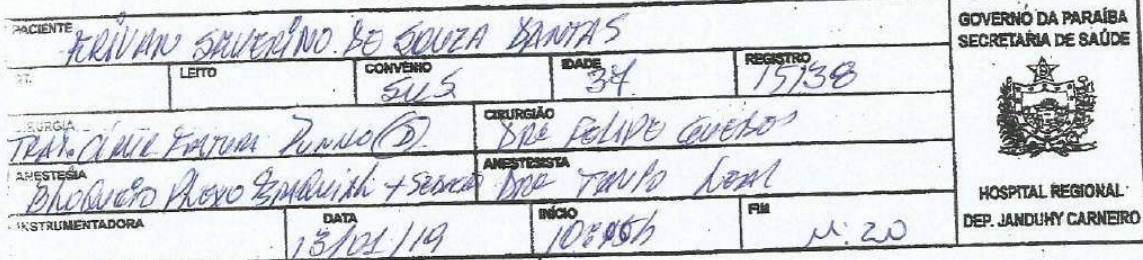 PACIENTE ERIVAN SEVERINO DE SOUZA DANTAS
LEITO CONVÊNIO SUS IDADE 37 REGISTRO 15138
CIRURGIA TRAT. CIRUR. FRATURA PUNHO (D) CIRURGIÃO DRº FELIPE
ANESTESIA BLOQUEIO PLEXO BRAQUIAL + SEDAÇÃO ANESTESISTA DRº
INSTRUMENTADORA DATA 13/01/19 INÍCIO FIM 11:20
GOVERNO DA PARAÍBA
SECRETARIA DE SAÚDE
HOSPITAL REGIONAL
DEP. JANDUHY CARNEIRO